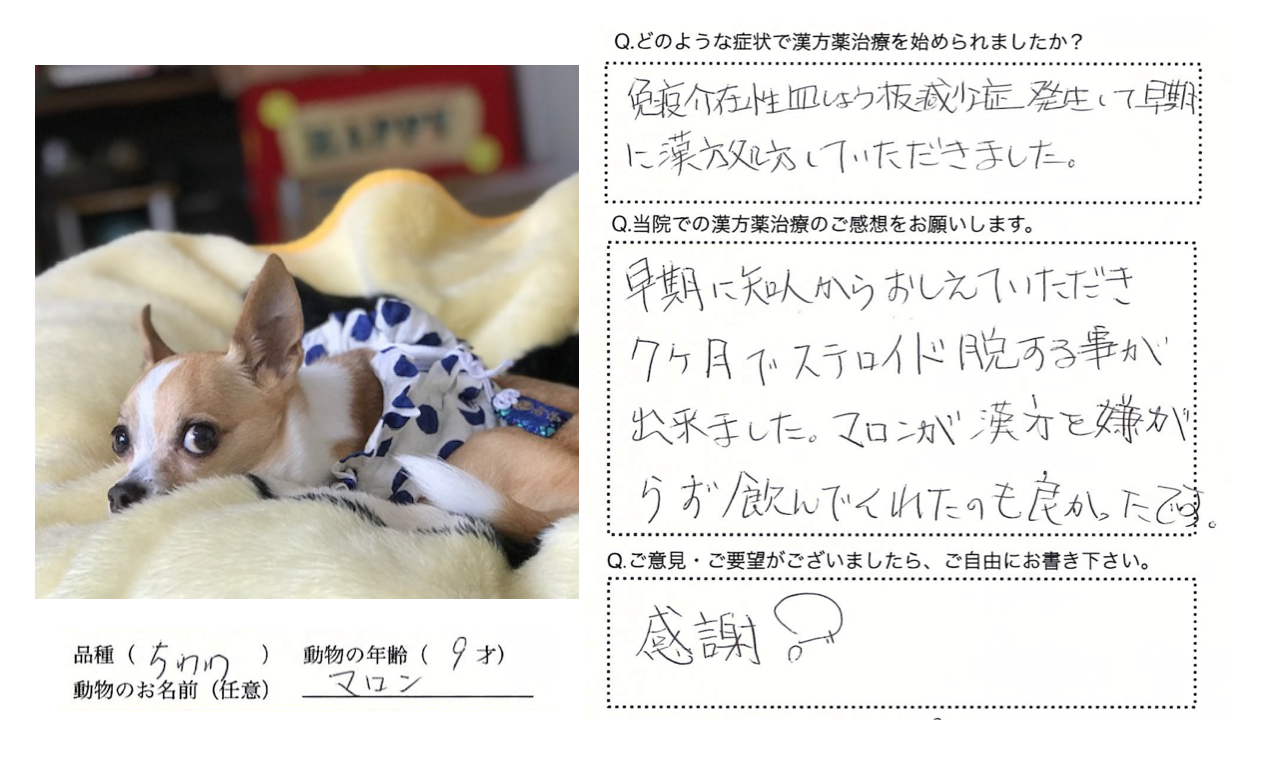 HAPPY
品種（ちわわ）　動物の年齢（9才）
動物のお名前（任意）　マロン
Q.どのような症状で漢方薬治療を始められましたか？
免疫介在性血しょう板減少症 発生して早期
に漢方処方していただきました。
Q.当院での漢方薬治療のご感想をお願いします。
早期に知人からおしえていただき
7ヶ月でステロイド脱する事が
出来ました。マロンが漢方を嫌が
らず飲んでくれたのも良かったです。
Q.ご意見・ご要望がございましたら、ご自由にお書き下さい。
感謝